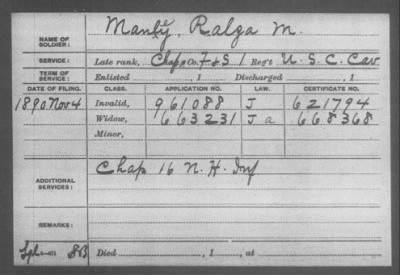 NAME OF SOLDIER: Manly, Ralza M.
SERVICE: Late rank, Chap Co. F&S 1 Reg't U. S. C. Cav
TERM OF SERVICE: Enlisted , 1 Discharged , 1
DATE OF FILING. CLASS. APPLICATION NO. LAW. CERTIFICATE NO.
1890 Nov 4 Invalid, 961088 J 621794
Widow, 663231 J a 668368
Minor,
ADDITIONAL SERVICES: Chap 16 N. H. Inf
REMARKS:
Died , 1 , at